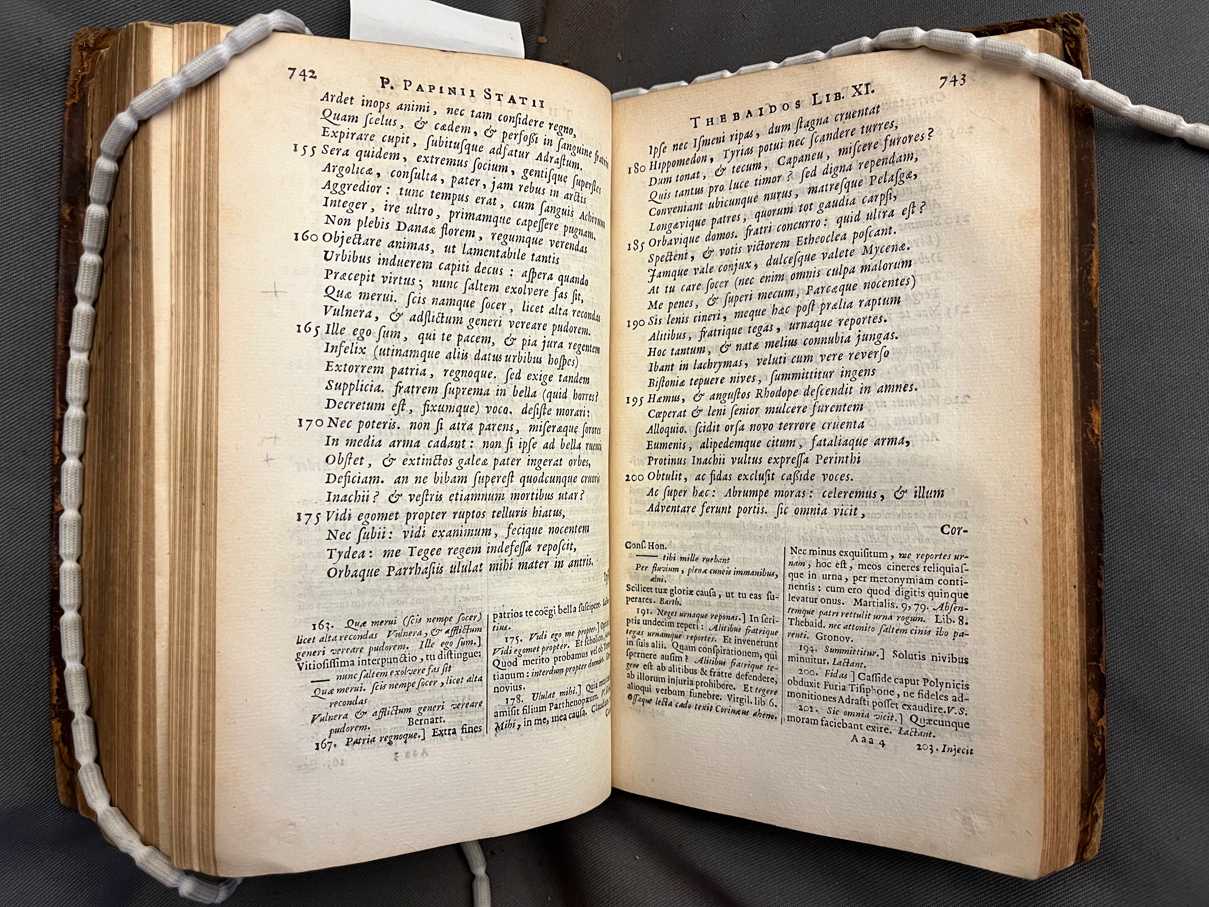 742
P. PAPINII STATII
Ardet inops animi, nec tam conſidere regno,
Quam ſcelus, & cædem, & perfoſſi in ſanguine fratris
Expirare cupit, ſubitusque adfatur Adraſtum.
155 Sera quidem, extremus ſocium, gentiſque ſuperſtes
Argolicæ, conſulta, pater, jam rebus in arctis
Aggredior: tunc tempus erat, cum ſanguis Achivum
Integer, ire ultro, primamque capeſſere pugnam.
Non plebis Danaæ florem, regumque verendas
160 Objectare animas, ut lamentabile tantis
Urbibus induerem capiti decus: aſpera quando
Præcepit virtus; nunc ſaltem exolvere fas ſit,
Quæ merui. ſcis namque ſocer, licet alta recondas
Vulnera, & adflictum generi vereare pudorem.
165 Ille ego ſum, qui te pacem, & pia jura regentem
Infelix (utinamque aliis datus urbibus hoſpes)
Extorrem patria, regnoque. ſed exige tandem
Supplicia. fratrem ſuprema in bella (quid horres?
Decretum eſt, fixumque) voco. deſiſte morari:
170 Nec poteris. non ſi atra parens, miſeræque ſorores
In media arma cadant: non ſi ipſe ad bella ruenti
Obſtet, & extinctos galeæ pater ingerat orbes,
Deficiam. an ne bibam ſupereſt quodcunque cruoris
Inachii? & veſtris etiamnum mortibus utar?
175 Vidi egomet propter ruptos telluris hiatus,
Nec ſubii: vidi exanimum, fecique nocentem
Tydea: me Tegee regem indefeſſa repoſcit,
Orbaque Parrhaſiis ululat mihi mater in antris.
163. Quæ merui (ſcis nempe ſocer)
licet alta recondas Vulnera, & afflictum
generi vereare pudorem. Ille ego ſum.]
Vitioſiſſima interpunctio, tu diſtingue:
— nunc ſaltem exolvere fas ſit
Quæ merui. ſcis nempe ſocer, licet alta
recondas
Vulnera & afflictum generi vereare
pudorem. Bernart.
167. Patria regnoque.] Extra fines
patrios te coëgi bella ſuſcipere.
175. Vidi ego me propter.]
Vidi egomet propter. Et ſcholiaſt.
Quod merito probamus vel ob
tianum: interdum propter
novius.
178. Ululat mihi.] Quia
amiſit filium Parthenopæum.
Mihi, in me, mea cauſa.
Aaa 3
743
THEBAIDOS LIB. XI.
Ipſe nec Iſmeni ripas, dum ſtagna cruentat
180 Hippomedon, Tyrias potui nec ſcandere turres,
Dum tonat, & tecum, Capaneu, miſcere furores?
Quis tantus pro luce timor? ſed digna rependam,
Conveniant ubicunque nurus, matreſque Pelaſgæ,
Longævique patres, quorum tot gaudia carpſi,
185 Orbavique domos. fratri concurro: quid ultra eſt?
Spectent, & votis victorem Etheoclea poſcant.
Jamque vale conjux, dulceſque valete Mycenæ.
At tu care ſocer (nec enim omnis culpa malorum
Me penes, & ſuperi mecum, Parcæque nocentes)
190 Sis lenis cineri, meque hæc poſt prælia raptum
Alitibus, fratrique tegas, urnaque reportes.
Hoc tantum, & natæ melius connubia jungas.
Ibant in lachrymas, veluti cum vere reverſo
Biſtoniæ tepuere nives, ſummittitur ingens
195 Hæmus, & anguſtos Rhodope deſcendit in amnes.
Cœperat & leni ſenior mulcere furentem
Alloquio. ſcidit orſa novo terrore cruenta
Eumenis, alipedemque citum, fataliaque arma,
Protinus Inachii vultus expreſſa Perinthi
200 Obtulit, ac fidas excluſit caſſide voces.
Ac ſuper hæc: Abrumpe moras: celeremus, & illum
Adventare ferunt portis. ſic omnia vicit,
Cor-
Conſ. Hon.
— tibi mille ruebant
Per fluvium, plenæ cuneis immanibus,
alni.
Scilicet tuæ gloriæ cauſa, ut tu eas ſu-
perares. Barth.
191. Neges urnaque reponas.] In ſcri-
ptis undecim reperi: Alitibus fratrique
tegas urnaque reportes. Et invenerunt
in ſuis alii. Quam conſpirationem, qui
ſpernere auſim? Alitibus fratrique te-
gere eſt ab alitibus & fratre defendere,
ab illorum injuria prohibere. Et tegere
alioqui verbum funebre. Virgil. lib 6.
Oſſaque lecta cado texit Corinæus aheno.
Nec minus exquiſitum, me reportes ur-
nam, hoc eſt, meos cineres reliquiaſ-
que in urna, per metonymiam conti-
nentis: cum ero quod digitis quinque
levatur onus. Martialis. 9, 79. Abſen-
temque patri rettulit urna rogum. Lib. 8.
Thebaid. nec attonito ſaltem cinis ibo pa-
renti. Gronov.
194. Summittitur.] Solutis nivibus
minuitur. Lactant.
200. Fidas] Caſſide caput Polynicis
obduxit Furia Tiſiphone, ne fideles ad-
monitiones Adraſti poſſet exaudire. V.S.
201. Sic omnia vicit.] Quæcunque
moram faciebant exire. Lactant.
Aaa 4
203. Injecit